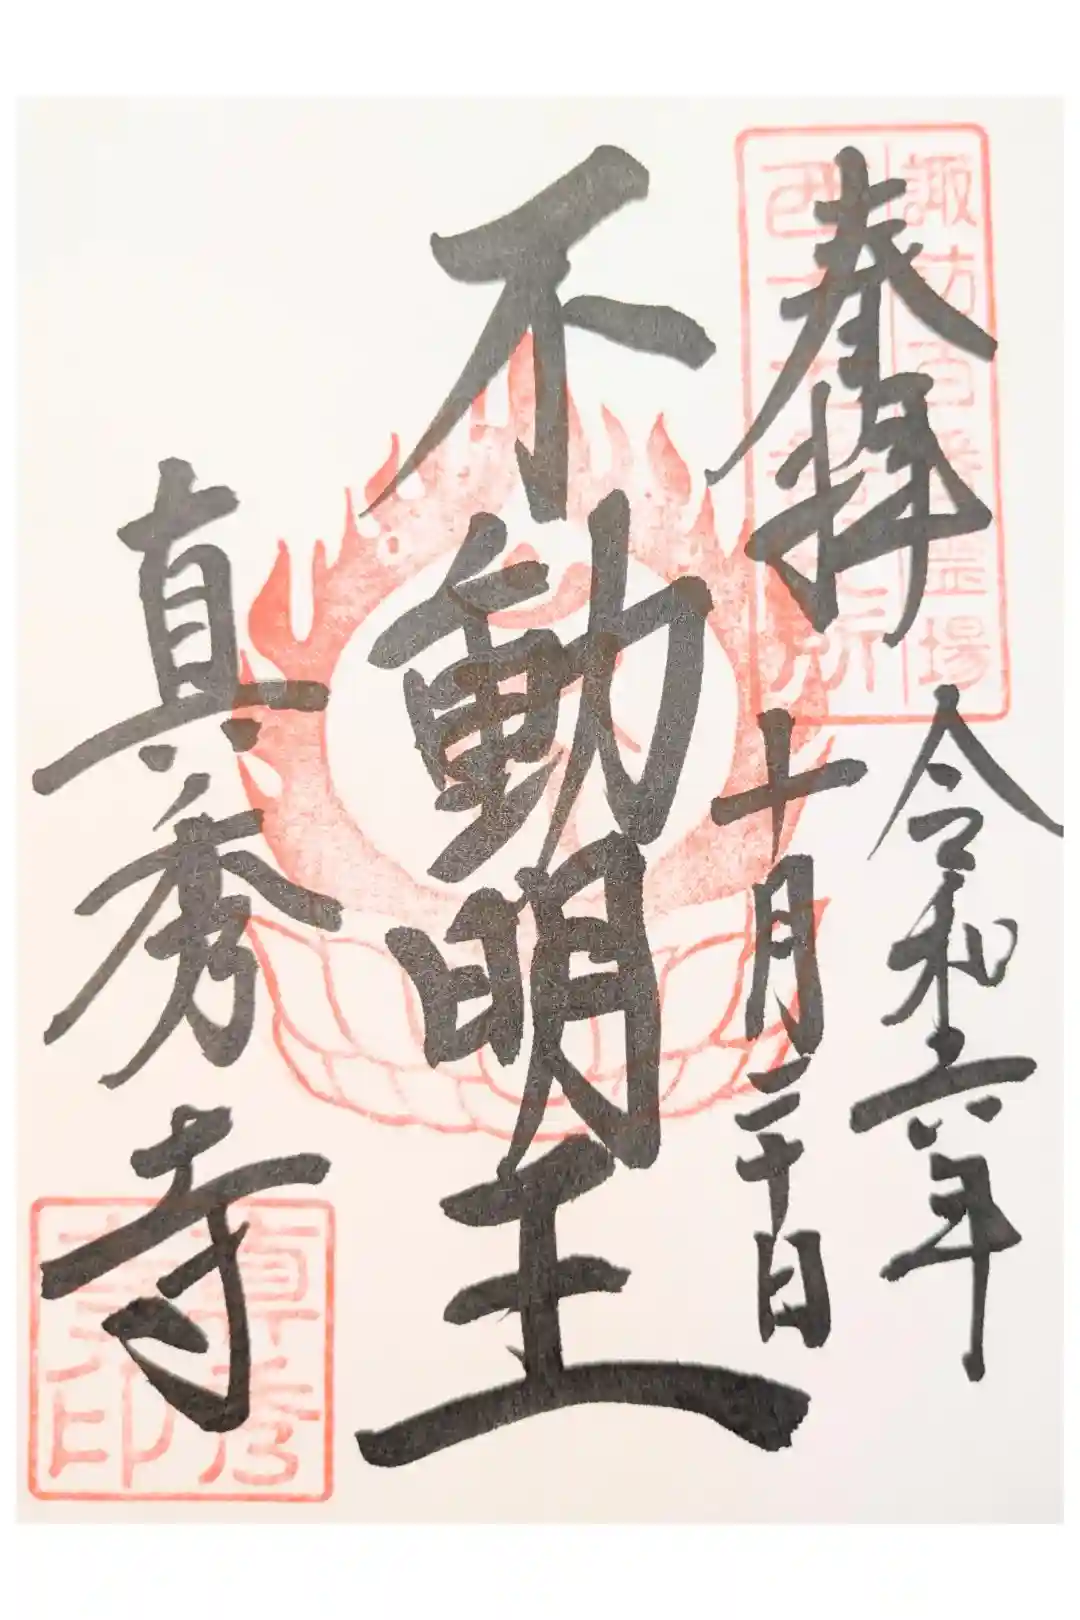 奉拝
諏訪百番霊場
令和六年
十月二十日
不動明王
真秀寺
真秀
寺印